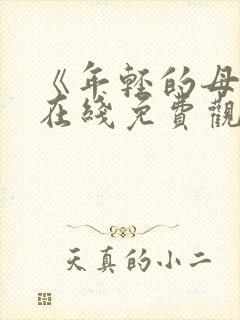 《年轻的母
在线免費觀
天真的小二